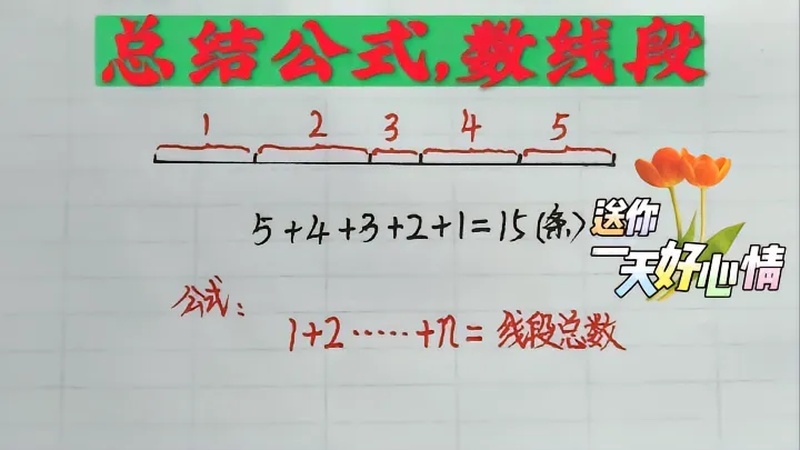 总结公式,数线段
1 2 3 4 5
5+4+3+2+1=15(条)
送你
一天好心情
公式:
1+2……+n=线段总数